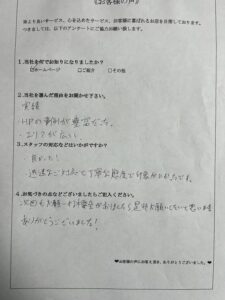 《お客様の声》
より良いサービス、心を込めたサービス、お客様に選ばれるお店を目指しております。
つきましては、以下のアンケートにご協力お願い致します。
1.当社を何でお知りになりましたか?
☑ホームページ □ご紹介 □その他
2.当社を選んだ理由をお聞かせ下さい。
実績
HPの事例が豊富だった。
エリアが広い
3.スタッフの対応などはいかがですか?
良かった!
迅速なご対応で丁寧な態度で好印象でした。
4.お気づきの点などございましたらご記入ください。
次回もお願いする機会がありましたら是非お願いしたいと思います
ありがとうございました!
♥お客様の声にお答え頂き、ありがとうございました。♥